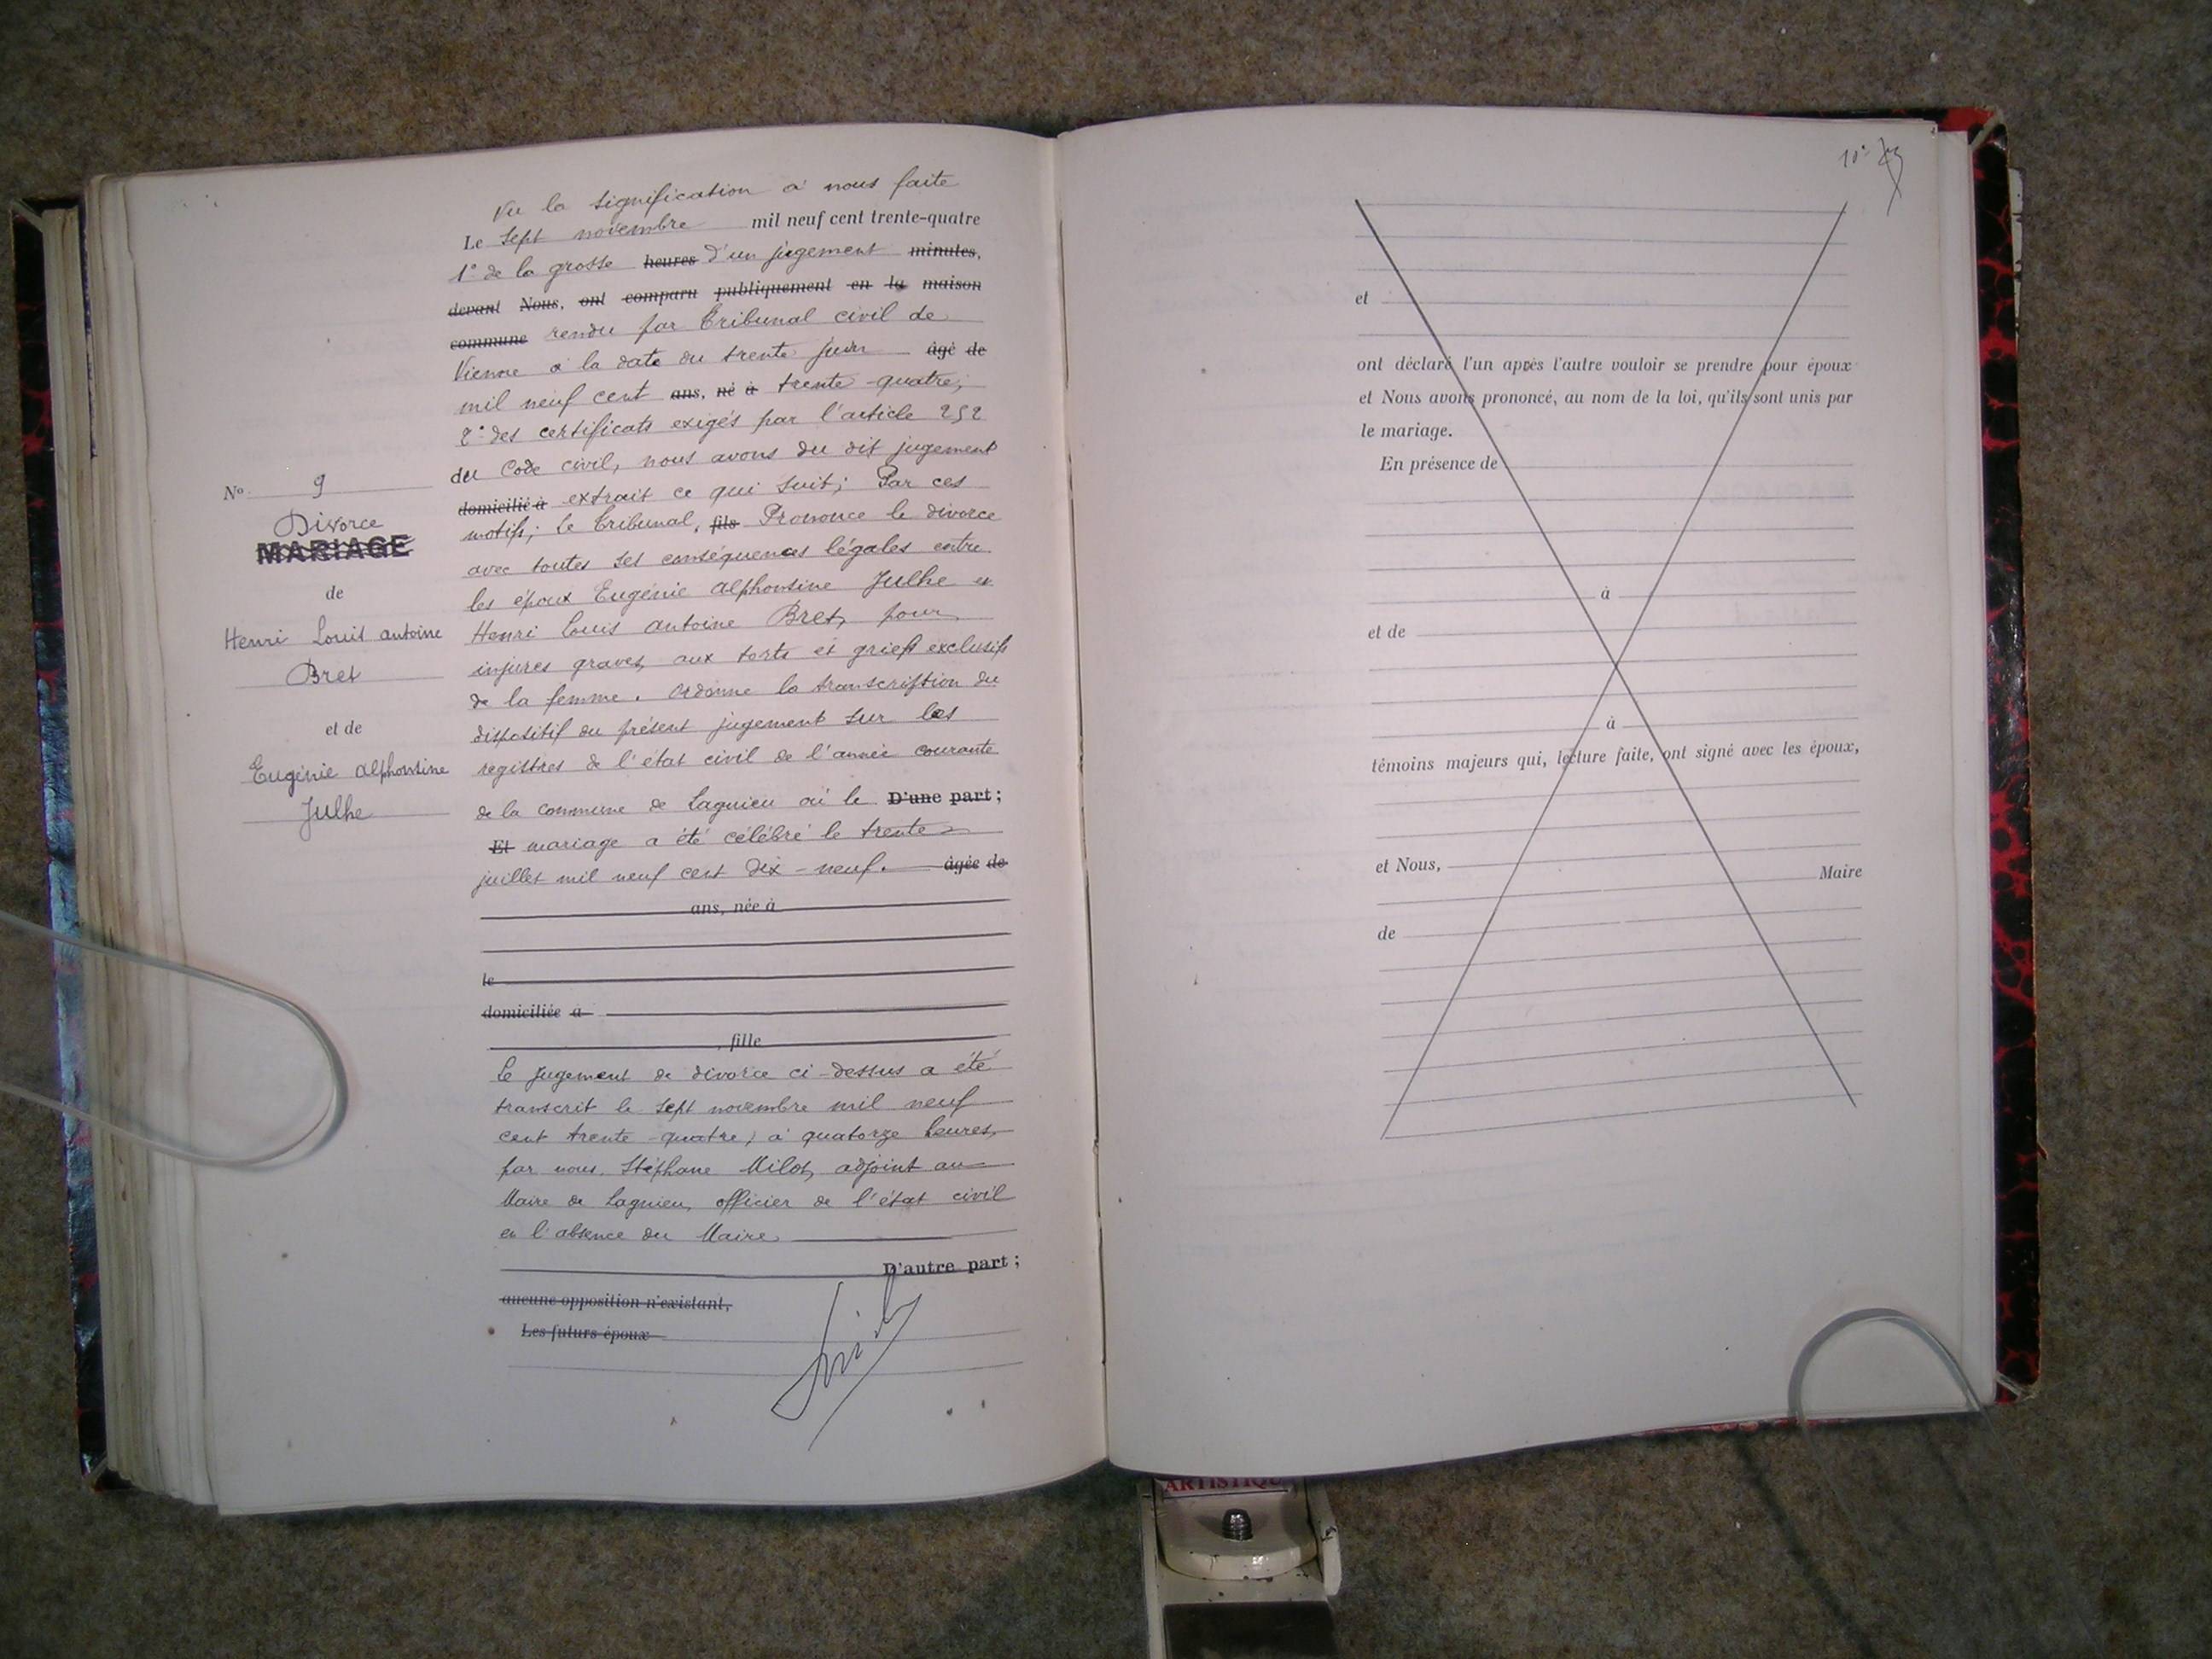 N° 9
Divorce
MARIAGE
de
Henri Louis antoine
Bret
et de
Eugénie Alphonsine
Julhe
Vu la signification à nous faite
Le sept novembre mil neuf cent trente-quatre
1° de la grosse heures d'un jugement minutes,
devant Nous, ont comparu publiquement en la maison
commune rendu par tribunal civil de
Vienne à la date du trente juin âgé de
mil neuf cent ans, né à trente-quatre;
2° des certificats exigés par l'article 252
du Code civil, nous avons du dit jugement
domicilié à extrait ce qui suit; Par ces
motifs; le tribunal, fils Prononce le divorce
avec toutes ses conséquences légales entre
les époux Eugénie Alphonsine Julhe et
Henri Louis Antoine Bret, pour
injures graves, aux torts et griefs exclusifs
de la femme. Ordonne la transcription du
dispositif du présent jugement sur les
registres de l'état civil de l'année courante
de la commune de Lagnieu où le D'une part;
Et mariage a été célébré le trente
juillet mil neuf cent dix-neuf. âgée de
ans, née à
le
domiciliée à
, fille
Le jugement de divorce ci-dessus a été
transcrit le sept novembre mil neuf
cent trente-quatre, à quatorze heures,
par nous, Stéphane Milot, adjoint au
Maire de Lagnieu, officier de l'état civil
en l'absence du Maire
D'autre part;
aucune opposition n'existant,
Les futurs époux
10°
et
ont déclaré l'un après l'autre vouloir se prendre pour époux
et Nous avons prononcé, au nom de la loi, qu'ils sont unis par
le mariage.
En présence de
à
et de
à
témoins majeurs qui, lecture faite, ont signé avec les époux,
et Nous,
Maire
de
ARTISTIQUE